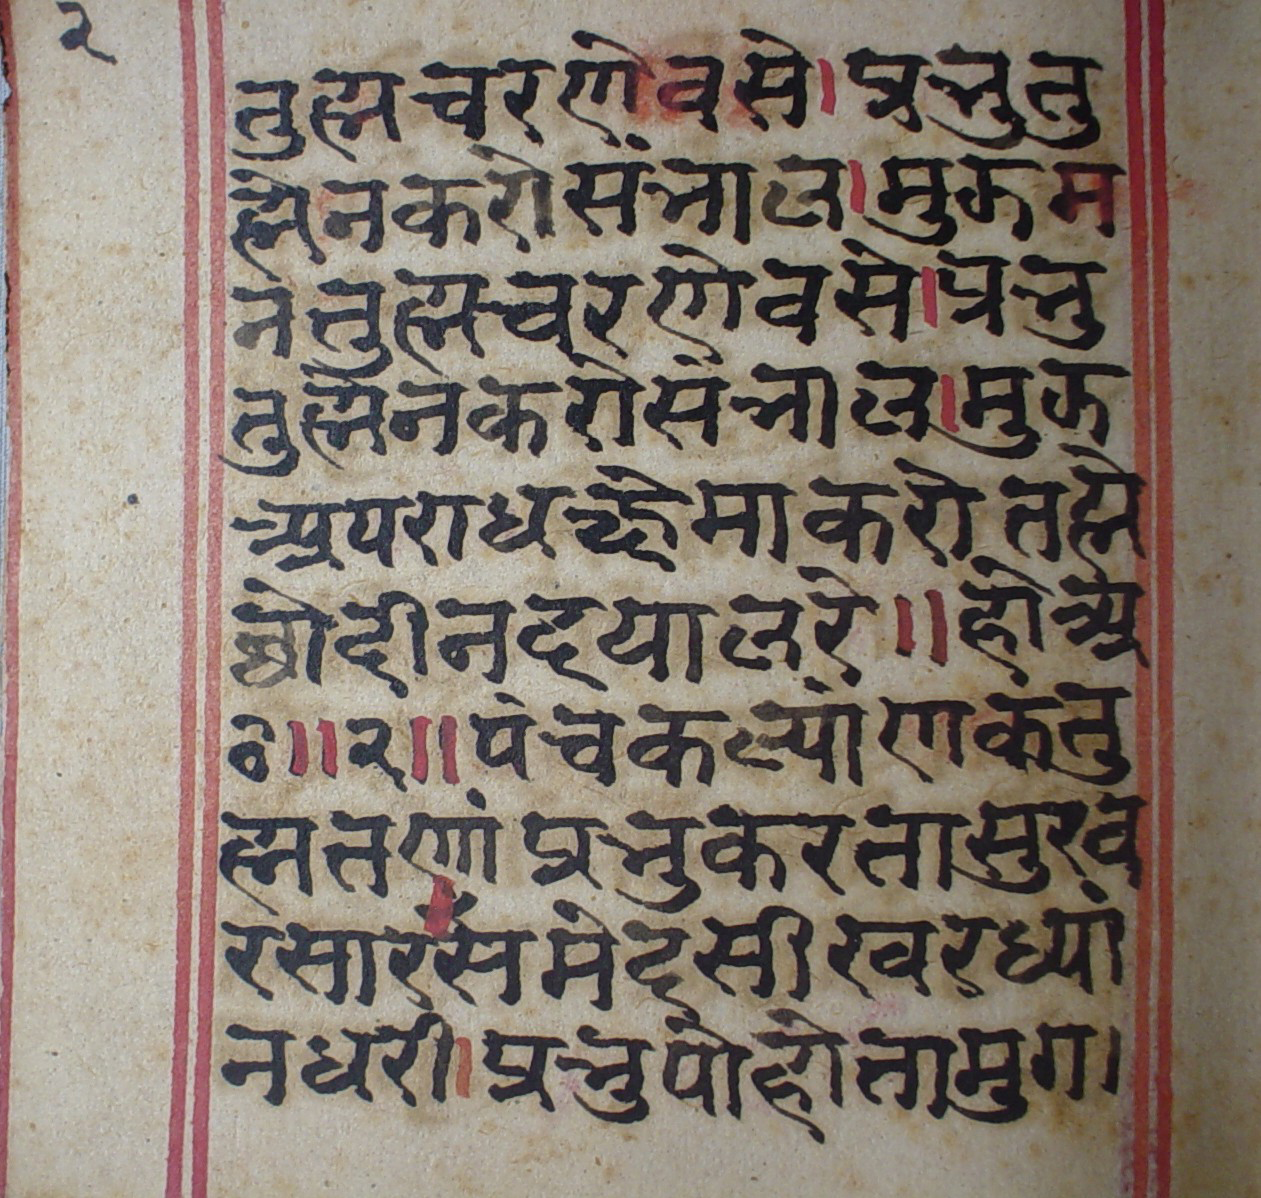 २
तुह्म चरणे वसे। प्रभुतु
ह्मे न करो संभाल। मुझ म
न तुह्म चरणे वसे। प्रभु
तुह्मे न करो संभाल। मुझ
अपराध स्हे मा करो तह्मे
छो दीन दयाल रे ॥ हो अ
०॥२॥ पंच कल्यांणक तु
ह्म तणां प्रभु करता सुरव
र सार समेद सीखर ध्यां
न धरी। प्रभु पोहोता मुग।